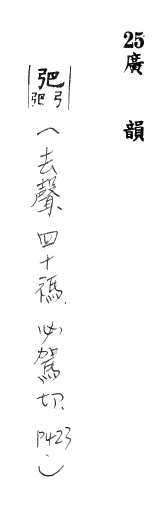 25廣韻
弝
弓弝
(去聲、四十禡、必駕切、P423)